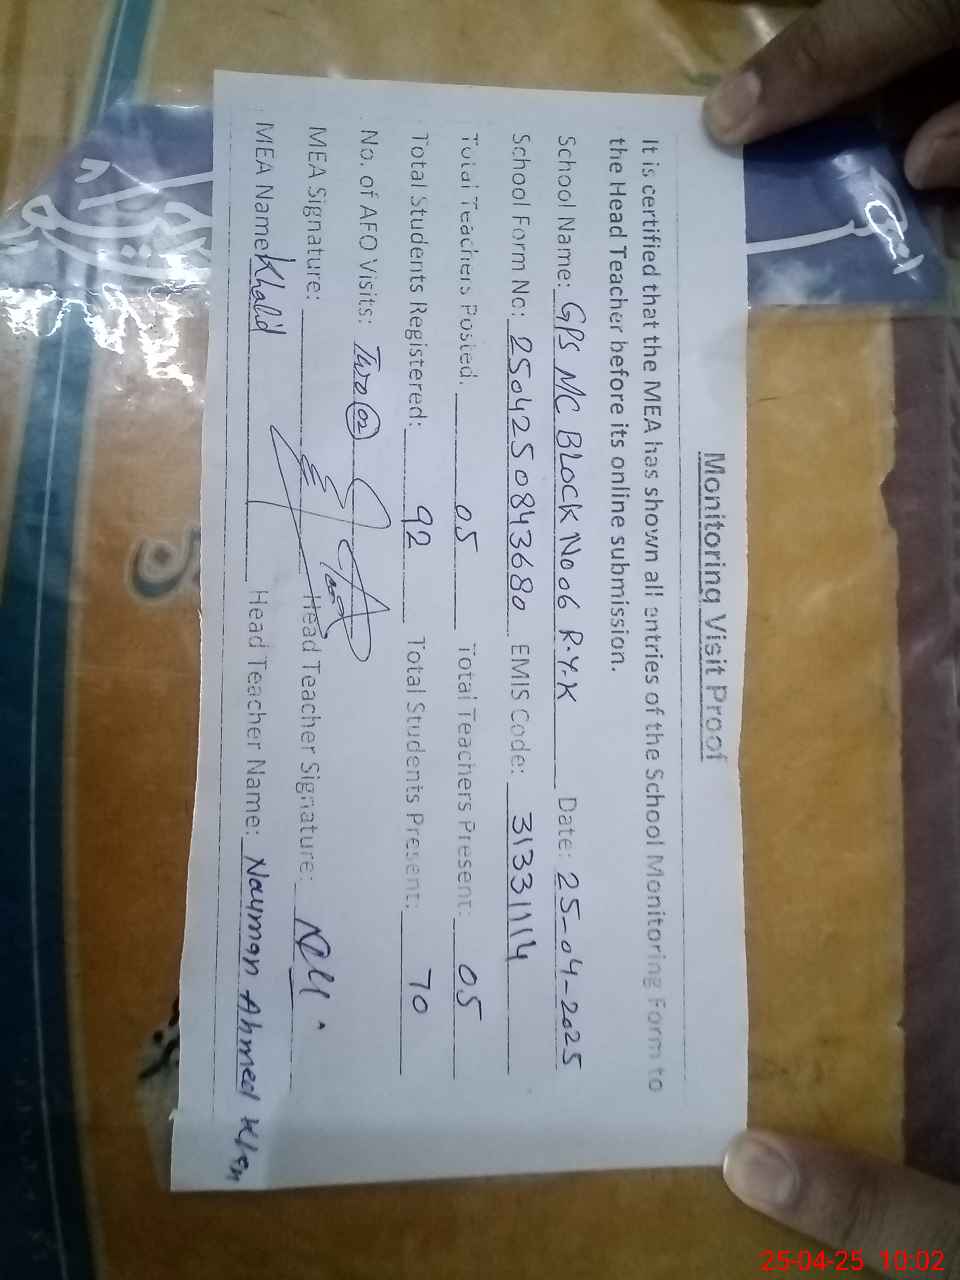 Monitoring Visit Proof
It is certified that the MEA has shown all entries of the School Monitoring Form to
the Head Teacher before its online submission.
School Name: GPS MC BLOCK No 06 R.Y.K Date: 25-04-2025
School Form No: 2504250843680 EMIS Code: 31331114
Total Teachers Posted. 05 Total Teachers Present: 05
Total Students Registered: 92 Total Students Present: 70
No. of AEO Visits: Two 02
MEA Signature: Head Teacher Signature:
MEA Name Khalid Head Teacher Name: Nayman Ahmed Khan
25-04-25 10:02